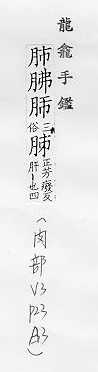 龍龕手鑑
肺胇肺三俗肺正芳廢反肝丨也四
(肉部 V3 P23 A3)